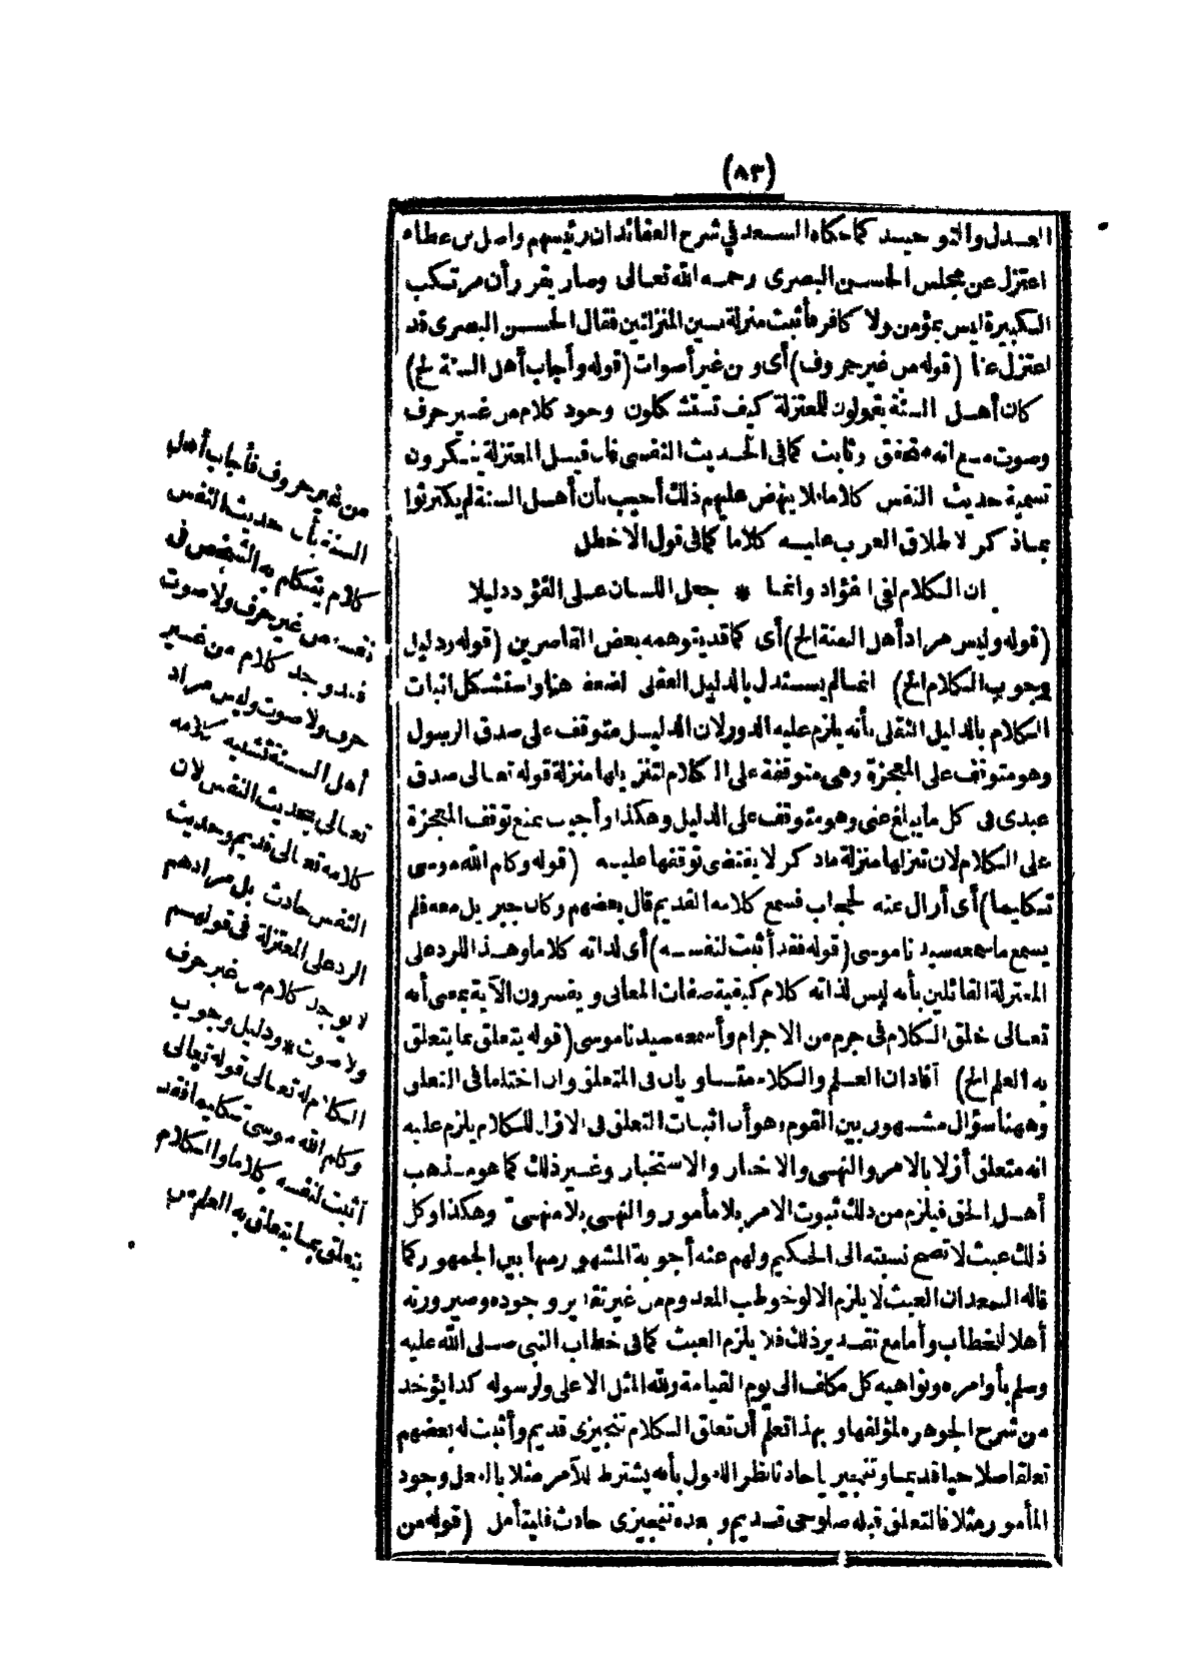 (٨٣)
العدل والتوحيد كما حكاه السعد في شرح العقائد ان رئيسهم واصل بن عطاء
اعتزل عن مجلس الحسن البصرى رحمه الله تعالى وصار يقرر أن مرتكب
الكبيرة ليس بمؤمن ولا كافر فأثبت منزلة بين المنزلتين فقال الحسن البصرى قد
اعتزل عنا (قوله من غير حروف) أى ومن غير أصوات (قوله وأجاب أهل السنة الخ)
كان أهل السنة يقولون للمعتزلة كيف تستشكلون وجود كلام من غير حرف
وصوت مع انه متحقق وثابت كما فى الحديث النفسى فان قيل المعتزلة ينكرون
تسمية حديث النفس كلاما فلا ينهض عليهم ذلك أجيب بأن أهل السنة لم يكترثوا
بما ذكر لاطلاق العرب عليه كلاما كما فى قول الاخطل
ان الكلام لفى الفؤاد وانما * جعل اللسان على الفؤاد دليلا
(قوله وليس مراد أهل السنة الخ) أى كما قد يتوهمه بعض القاصرين (قوله ودليل
وجوب الكلام الخ) انما لم يستدل بالدليل العقلى لضعفه هنا واستشكل اثبات
الكلام بالدليل النقلى بأنه يلزم عليه الدور لان الدليل متوقف على صدق الرسول
وهو متوقف على المعجزة وهى متوقفة على الكلام لتنزيلها منزلة قوله تعالى صدق
عبدى فى كل ما يبلغ عنى وهو متوقف على الدليل وهكذا وأجيب بمنع توقف المعجزة
على الكلام لان تنزلها منزلة ما ذكر لا يقتضى توقفها عليه (قوله وكلم الله موسى
تكليما) أى أزال عنه الحجاب فسمع كلامه القديم قال بعضهم وكان جبريل معه فلم
يسمع ما سمعه سيدنا موسى (قوله فقد أثبت لنفسه) أى لذاته كلاما وهذا للرد على
المعتزلة القائلين بأنه ليس لذاته كلام كبقية صفات المعانى ويفسرون الآية بمعنى أنه
تعالى خلق الكلام فى جرم من الاجرام وأسمعه سيدنا موسى (قوله يتعلق بما يتعلق
به العلم الخ) أفاد ان العلم والكلام متساويان فى المتعلق وان اختلفا فى التعلق
وههنا سؤال مشهور بين القوم وهو أن اثبات التعلق فى الازل للكلام يلزم عليه
انه متعلق أزلا بالامر والنهى والاخبار والاستخبار وغير ذلك كما هو مذهب
أهل الحق فيلزم من ذلك ثبوت الامر بلا مأمور والنهى بلا منهىّ وهكذا وكل
ذلك عبث لا تصح نسبته الى الحكيم ولهم عنه أجوبة المشهور منها بين الجمهور كما
قاله السعد ان العبث لا يلزم الا لو خوطب المعدوم من غير تقدير وجوده وصيرورته
أهلا للخطاب وأما مع تقدير ذلك فلا يلزم العبث كما فى خطاب النبى صلى الله عليه
وسلم بأوامره ونواهيه كل مكلف الى يوم القيامة ولله المثل الاعلى ولرسوله كذا يؤخذ
من شرح الجوهرة لمؤلفها وبهذا تعلم أن تعلق الكلام تنجيزى قديم وأثبت له بعضهم
تعلقا صلاحيا قديما وتنجيزيا حادثا نظر اللاول بأنه يشترط للآمر مثلا بالفعل وجود
المأمور مثلا فالتعلق قبله صلوحى قديم وبعده تنجيزى حادث فليتأمل (قوله من
من غير حروف فأجاب أهل
السنة بأن حديث النفس
كلام يتكلم به الشخص فى
نفسه من غير حرف ولا صوت
فقد وجد كلام من غير
حرف ولا صوت وليس مراد
أهل السنة تشبيه كلامه
تعالى بحديث النفس لان
كلامه تعالى قديم وحديث
النفس حادث بل مرادهم
الرد على المعتزلة فى قولهم
لا يوجد كلام من غير حرف
ولا صوت * ودليل وجوب
الكلام له تعالى قوله تعالى
وكلم الله موسى تكليما فقد
أثبت لنفسه كلاما والكلام
يتعلق بما يتعلق به العلم من